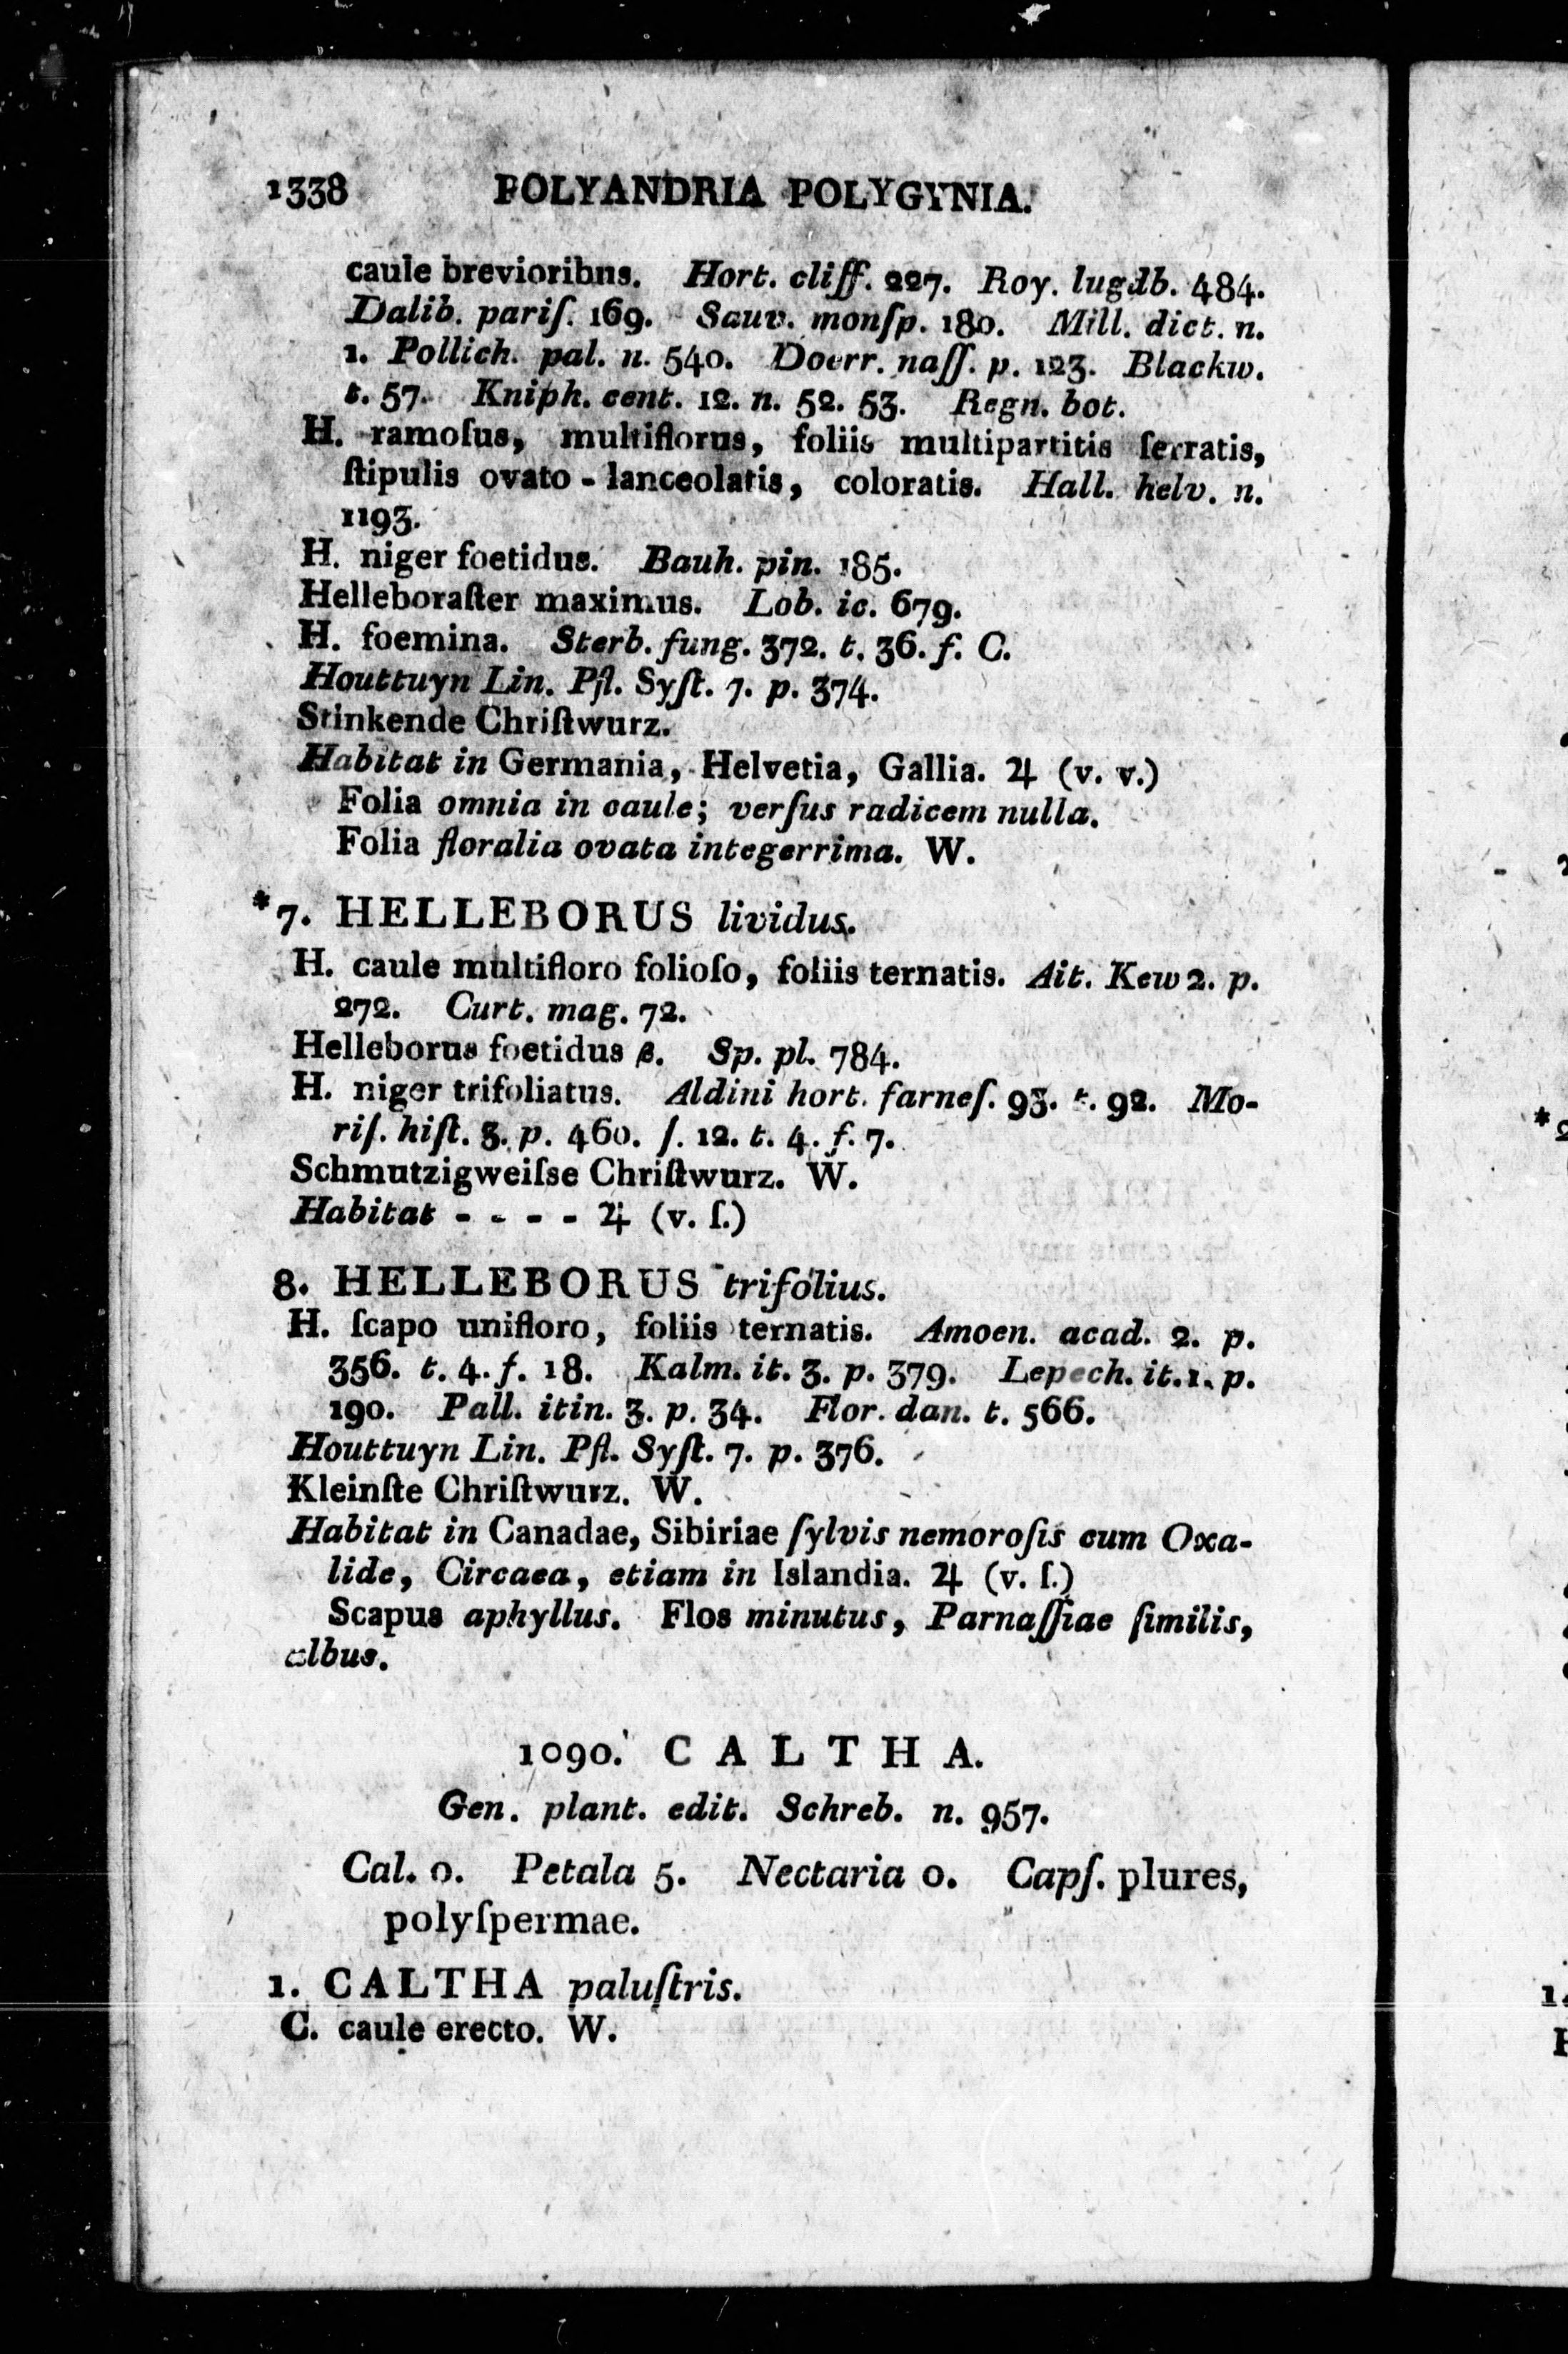 1338 POLYANDRIA POLYGYNIA.
caule brevioribus. Hort. cliff. 227. Roy. lugdb. 484.
Dalib. pariſ. 169. Sauv. monſp. 180. Mill. dict. n.
1. Pollich. pal. n. 540. Doerr. naſſ. p. 123. Blackw.
t. 57. Kniph. cent. 12. n. 52. 53. Regn. bot.
H. ramoſus, multiflorus, foliis multipartitis ſerratis,
ſtipulis ovato - lanceolatis, coloratis. Hall. helv. n.
1193.
H. niger foetidus. Bauh. pin. 185.
Helleboraſter maximus. Lob. ic. 679.
H. foemina. Sterb. fung. 372. t. 36. f. C.
Houttuyn Lin. Pfl. Syſt. 7. p. 374.
Stinkende Chriſtwurz.
Habitat in Germania, Helvetia, Gallia. ♃ (v. v.)
Folia omnia in caule; verſus radicem nulla.
Folia floralia ovata integerrima. W.
*7. HELLEBORUS lividus.
H. caule multifloro folioſo, foliis ternatis. Ait. Kew 2. p.
272. Curt. mag. 72.
Helleborus foetidus β. Sp. pl. 784.
H. niger trifoliatus. Aldini hort. farneſ. 93. t. 92. Mo-
riſ. hiſt. 3. p. 460. ſ. 12. t. 4. f. 7.
Schmutzigweiſse Chriſtwurz. W.
Habitat - - - - ♃ (v. ſ.)
8. HELLEBORUS trifolius.
H. ſcapo unifloro, foliis ternatis. Amoen. acad. 2. p.
356. t. 4. f. 18. Kalm. it. 3. p. 379. Lepech. it. 1. p.
190. Pall. itin. 3. p. 34. Flor. dan. t. 566.
Houttuyn Lin. Pfl. Syſt. 7. p. 376.
Kleinſte Chriſtwurz. W.
Habitat in Canadae, Sibiriae ſylvis nemoroſis cum Oxa-
lide, Circaea, etiam in Islandia. ♃ (v. ſ.)
Scapus aphyllus. Flos minutus, Parnaſſiae ſimilis,
albus.
1090. CALTHA.
Gen. plant. edit. Schreb. n. 957.
Cal. 0. Petala 5. Nectaria 0. Capſ. plures,
polyſpermae.
1. CALTHA paluſtris.
C. caule erecto. W.